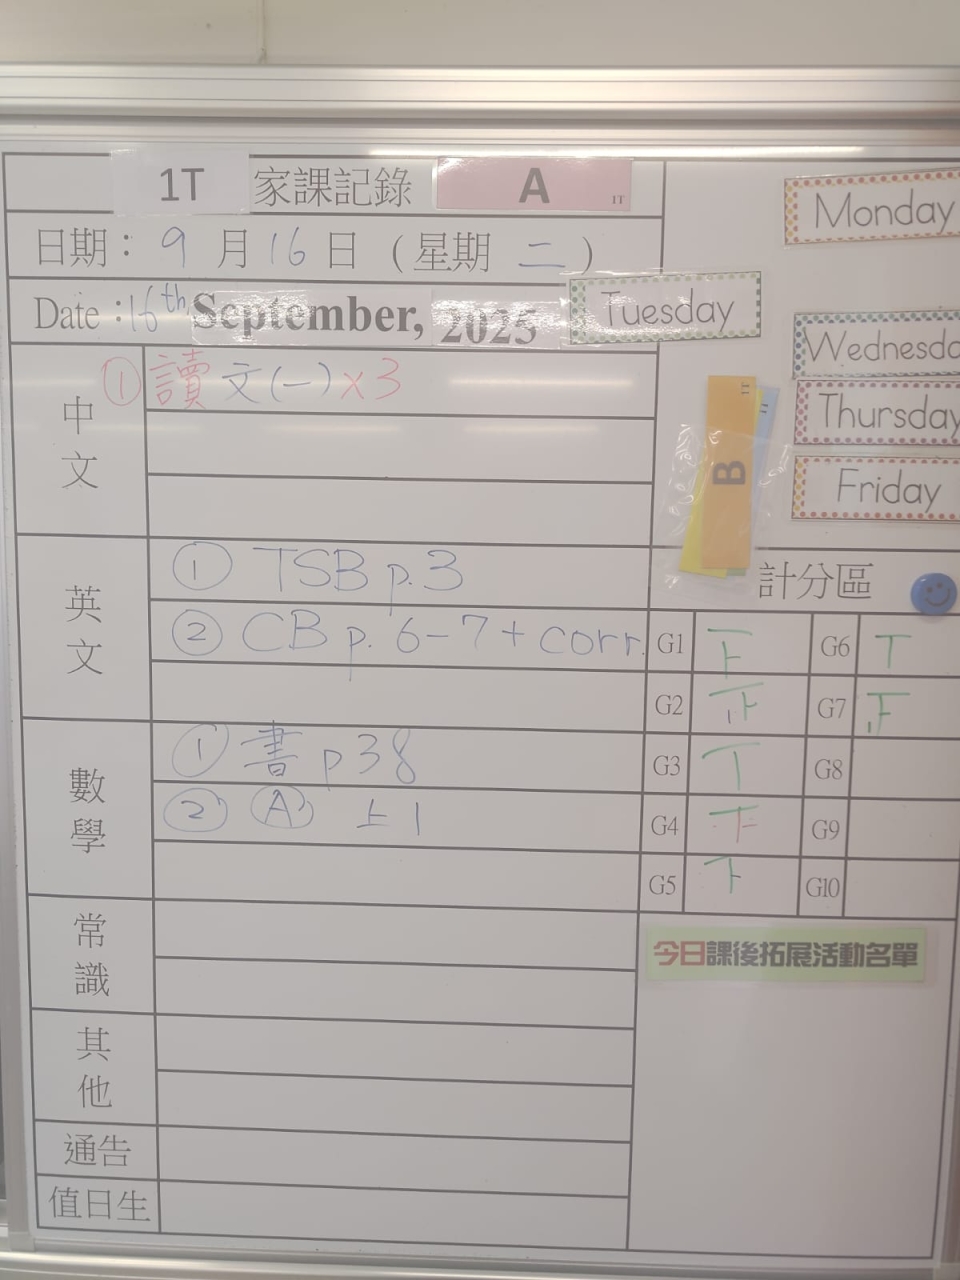 1T 家課記錄 A 1T
日期： 9 月 16 日 ( 星期 二 )
Date : 16th September, 2025 Tuesday
Monday
Wednesd
Thursday
Friday
1T
B
中文
① 讀文(一)×3
英文
① TSB p.3
② CB p. 6-7 + corr.
數學
① 書 p38
② Ⓐ 上1
常識
其他
通告
值日生
計分區
G1 G6
G2 G7
G3 G8
G4 G9
G5 G10
今日課後拓展活動名單